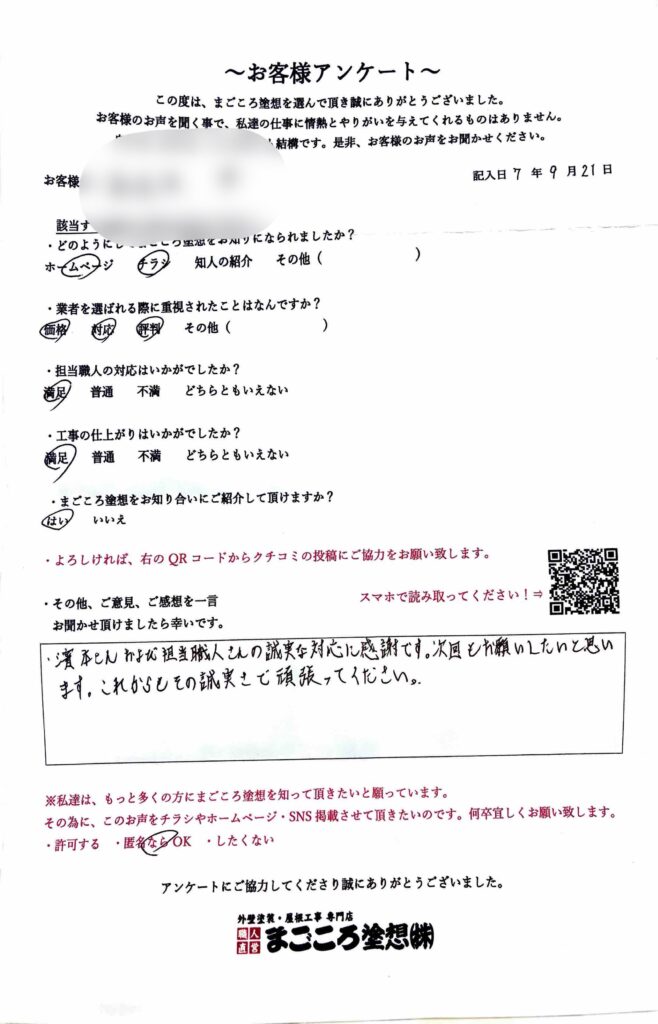 ～お客様アンケート～
この度は、まごころ塗想を選んで頂き誠にありがとうございました。
お客様のお声を聞く事で、私達の仕事に情熱とやりがいを与えてくれるものはありません。
結構です。是非、お客様のお声をお聞かせください。
お客様
記入日 7 年 9 月 21 日
該当す
・どのようにしてまごころ塗想をお知りになられましたか？
ホームページ チラシ 知人の紹介 その他（ ）
・業者を選ばれる際に重視されたことはなんですか？
価格 対応 評判 その他（ ）
・担当職人の対応はいかがでしたか？
満足 普通 不満 どちらともいえない
・工事の仕上がりはいかがでしたか？
満足 普通 不満 どちらともいえない
・まごころ塗想をお知り合いにご紹介して頂けますか？
はい いいえ
・よろしければ、右のQRコードからクチコミの投稿にご協力をお願い致します。
・その他、ご意見、ご感想を一言
スマホで読み取ってください！⇒
お聞かせ頂けましたら幸いです。
・濱本さんおよび担当職人さんの誠実な対応に感謝です。次回もお願いしたいと思い
ます。これからもその誠実さで頑張ってください。
※私達は、もっと多くの方にまごころ塗想を知って頂きたいと願っています。
その為に、このお声をチラシやホームページ・SNS掲載させて頂きたいのです。何卒宜しくお願い致します。
・許可する ・匿名ならOK ・したくない
アンケートにご協力してくださり誠にありがとうございました。
外壁塗装・屋根工事 専門店
職人直営 まごころ塗想㈱